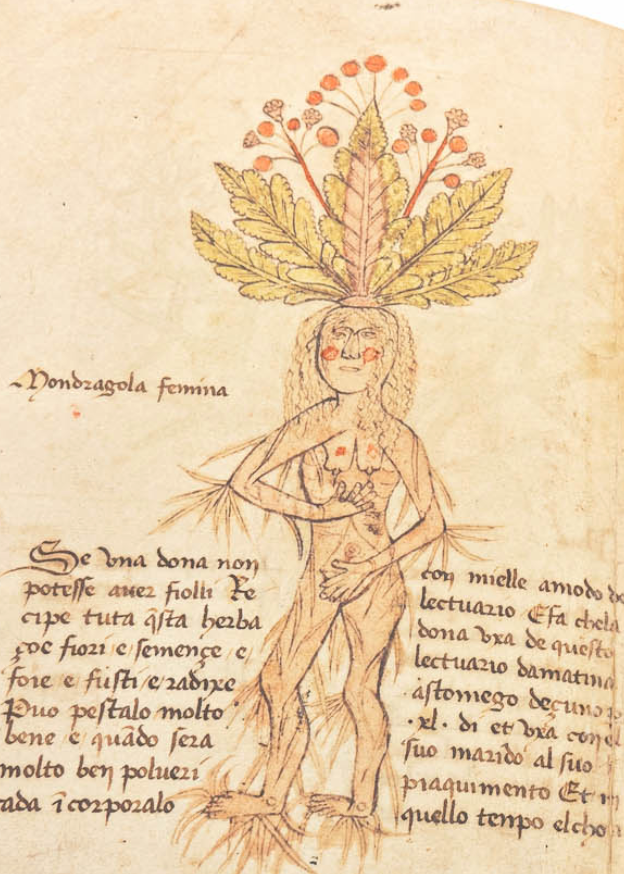 Mondragola femina
Se vna dona non
potesse auer fiolli Re
cipe tuta q̄sta herba
çoe fiori e semençe e
foie e fusti e radixe
Puo pestalo molto
bene e quādo sera
molto ben polueri
ī corporalo
con mielle amodo
lectuario E fa chela
dona vxa de questo
lectuario damatina
astomego deçuno
·xl· di et vxa con el
suo marido al suo
piaquimento Et
quello tenpo